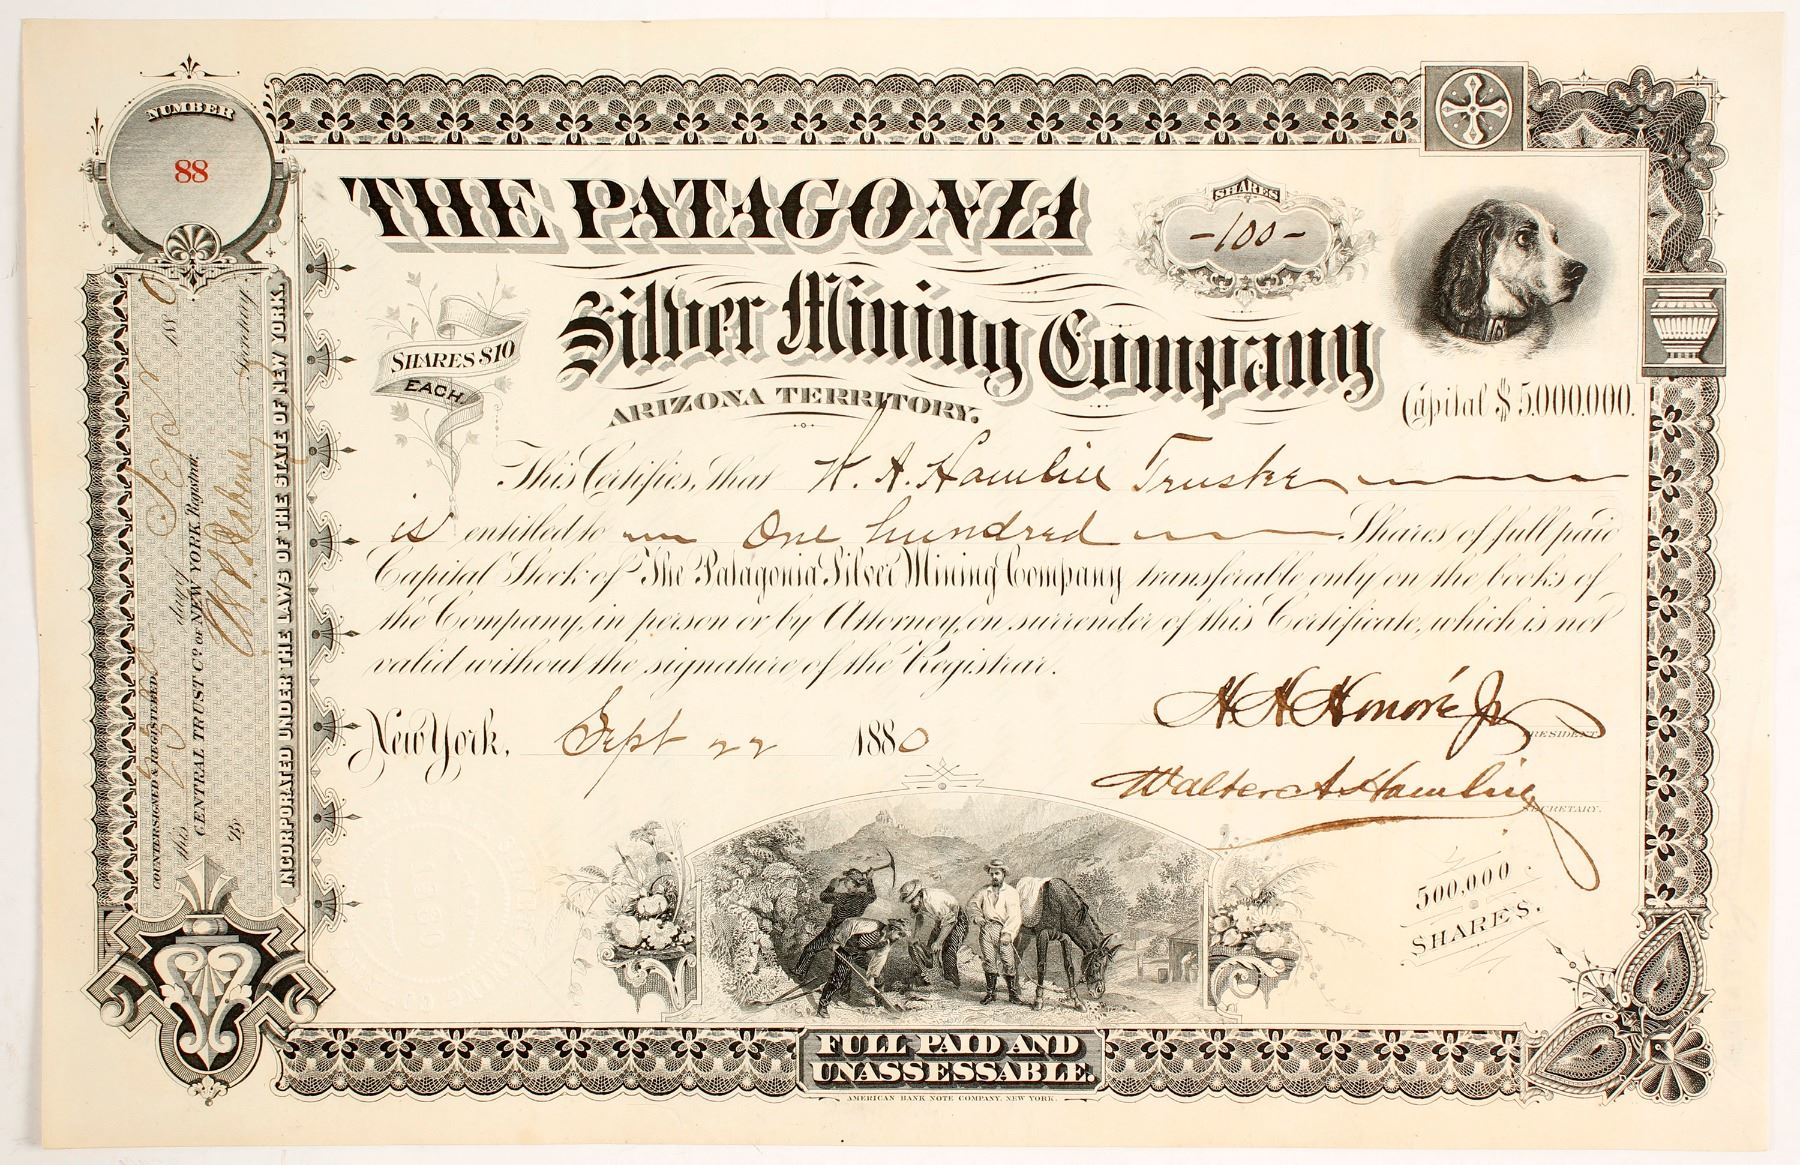 NUMBER
88
THE PATAGONIA
SHARES
-100-
Silver Mining Company
SHARES $10
EACH
ARIZONA TERRITORY.
Capital $5,000,000.
This Certifies, that W. A. Hamlin Trustee
is entitled to One hundred Shares of full paid
Capital Stock of The Patagonia Silver Mining Company transferable only on the books of
the Company, in person or by Attorney, on surrender of this Certificate, which is not
valid without the signature of the Registrar.
New York, Sept 22 1880
H H Honoré Jr
PRESIDENT
Walter A Hamlin
SECRETARY.
500,000
SHARES.
FULL PAID AND
UNASSESSABLE.
AMERICAN BANK NOTE COMPANY, NEW YORK.
COUNTERSIGNED & REGISTERED
this 23d day of Sept 1880
CENTRAL TRUST CO. OF NEW YORK, Registrar.
By Secretary.
INCORPORATED UNDER THE LAWS OF THE STATE OF NEW YORK.